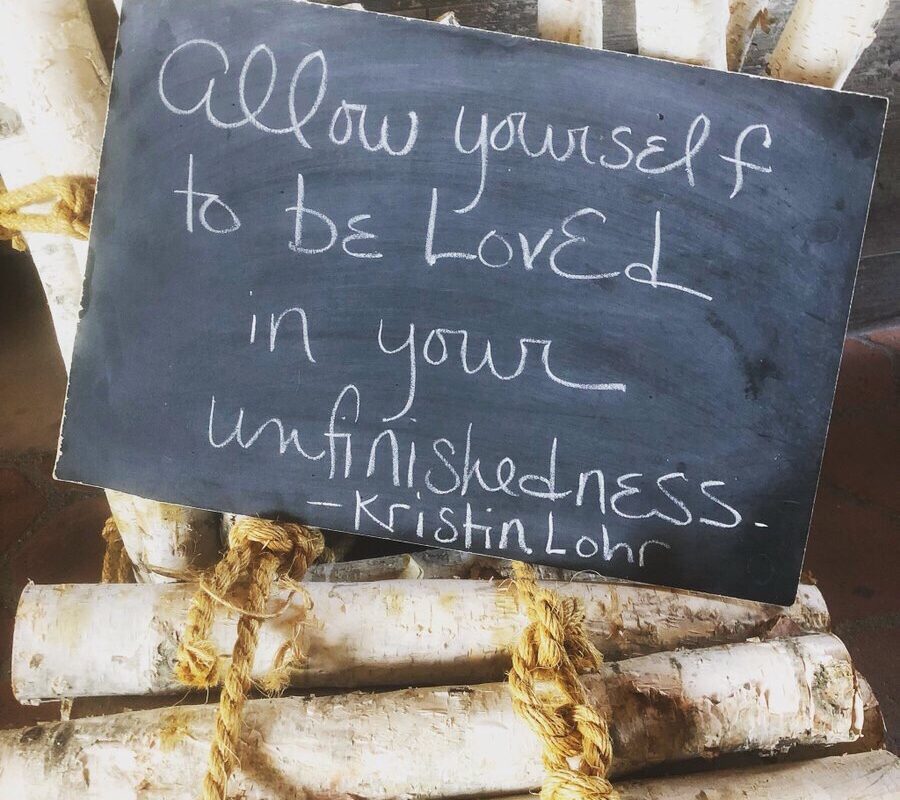 Allow yourself
to be LovEd
in your
unfinishedness.
-Kristin Lohr